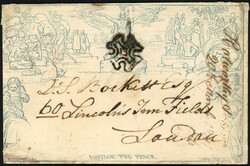 D. S. Bockett Esq
60 Lincoln's Inn Fields
London
POSTAGE TWO PENCE.